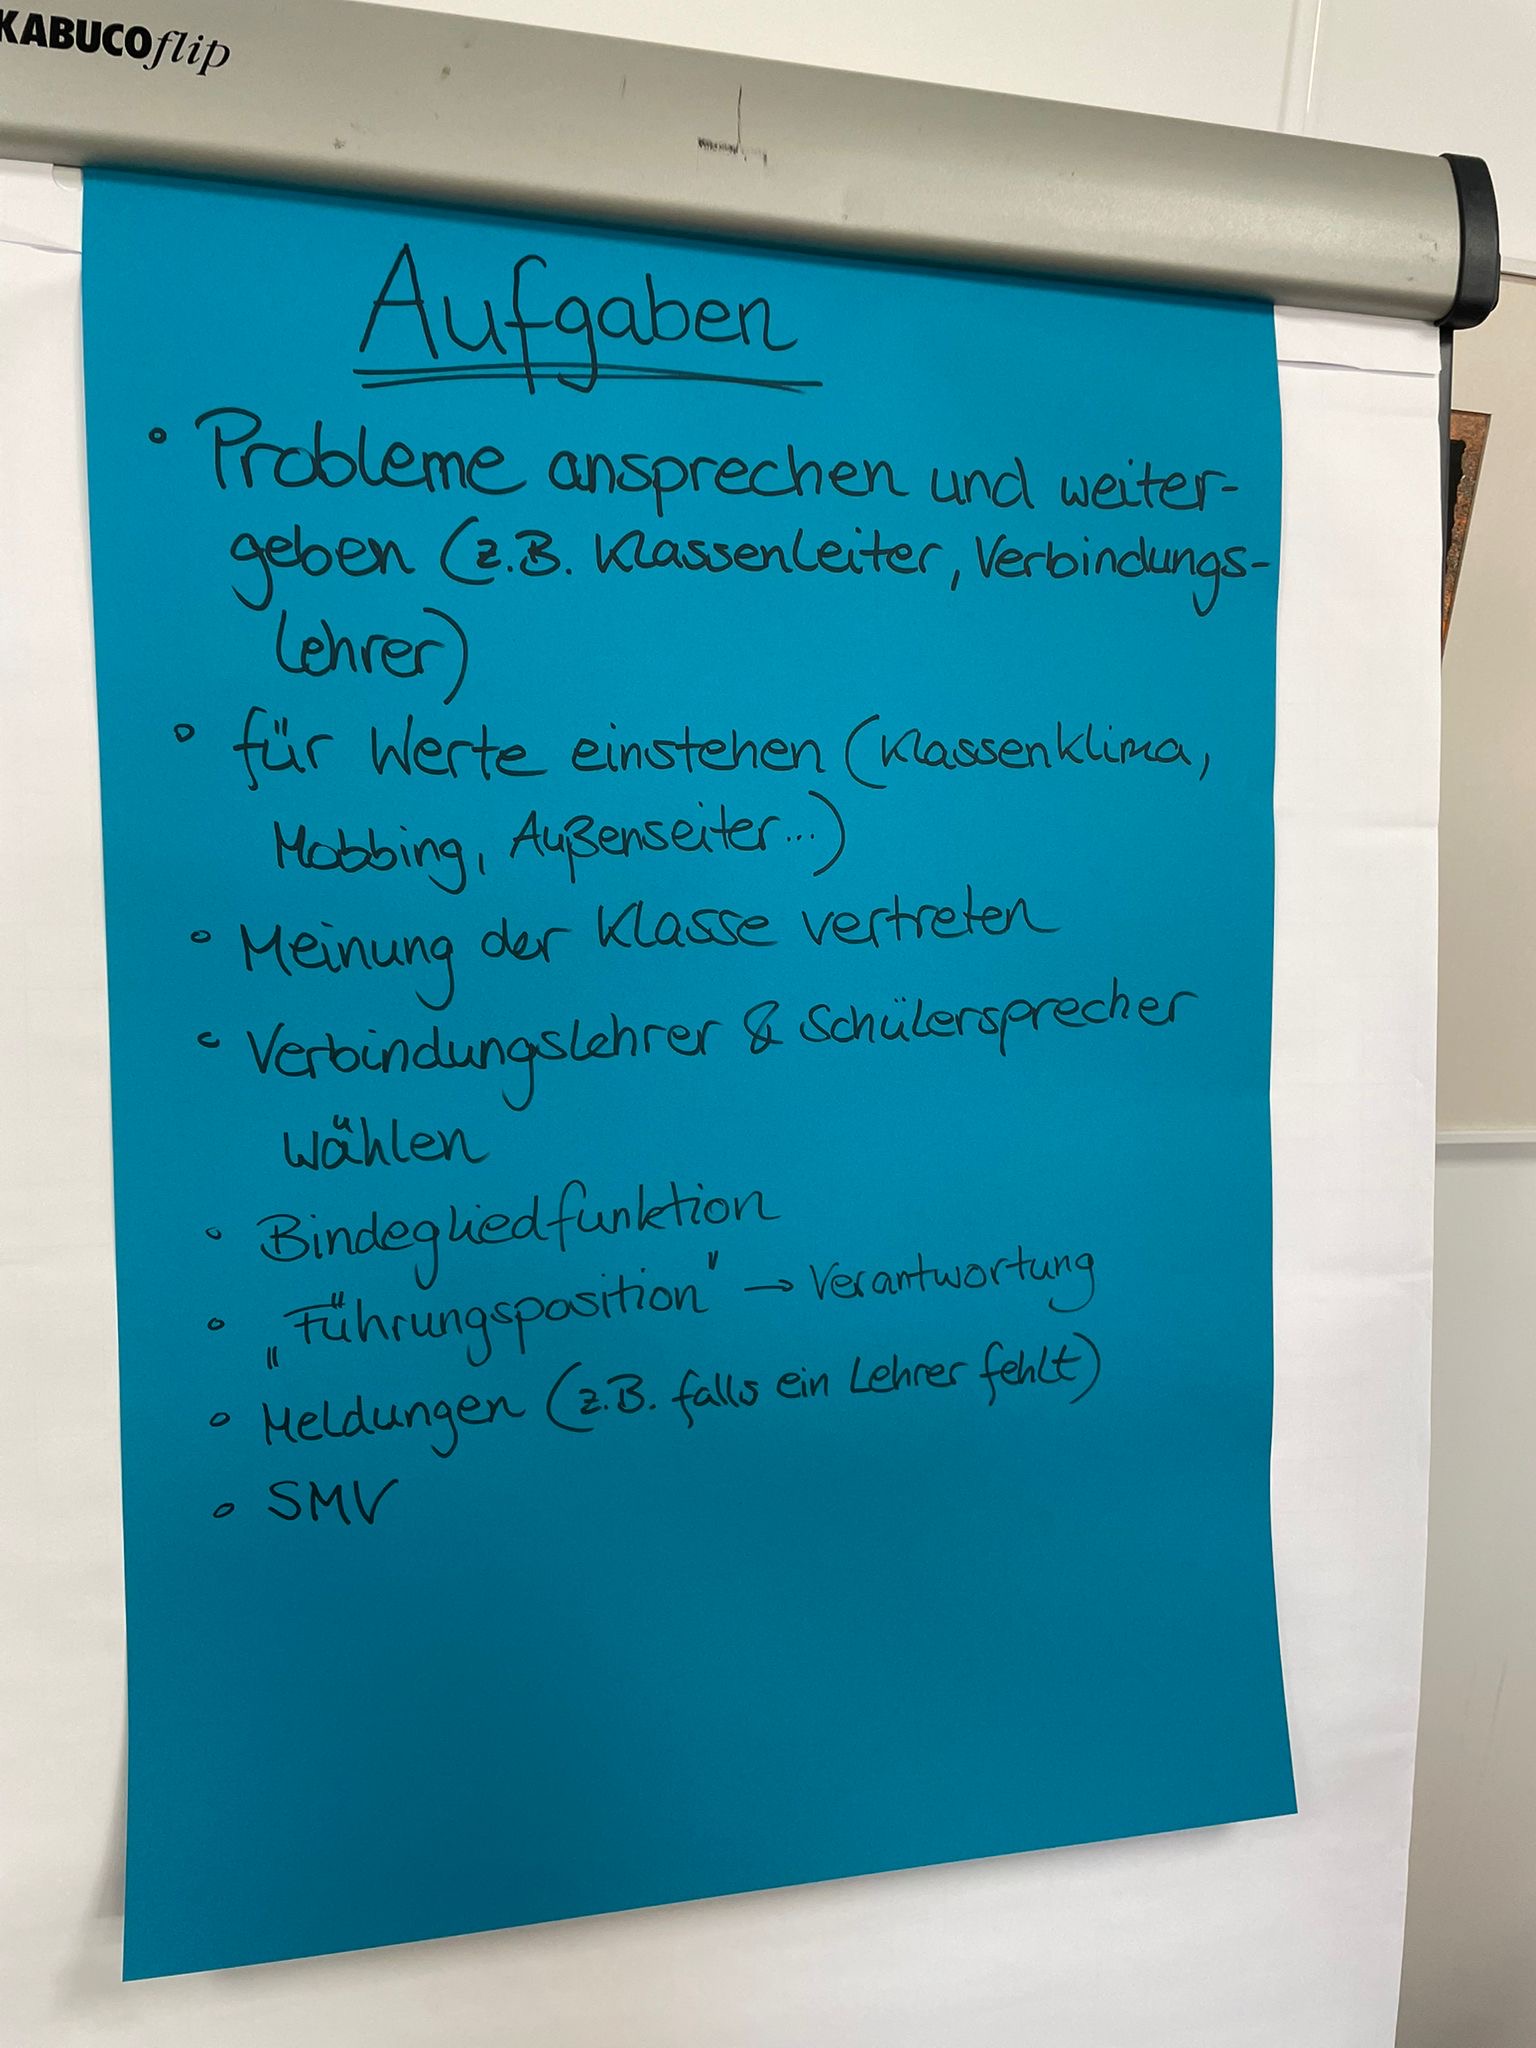 KABUCOflip
Aufgaben
• Probleme ansprechen und weiter-
geben (z.B. Klassenleiter, Verbindungs-
lehrer)
• für Werte einstehen (Klassenklima,
Mobbing, Außenseiter...)
• Meinung der Klasse vertreten
• Verbindungslehrer & Schülersprecher
wählen
• Bindegliedfunktion
• „Führungsposition" → Verantwortung
• Meldungen (z.B. falls ein Lehrer fehlt)
• SMV